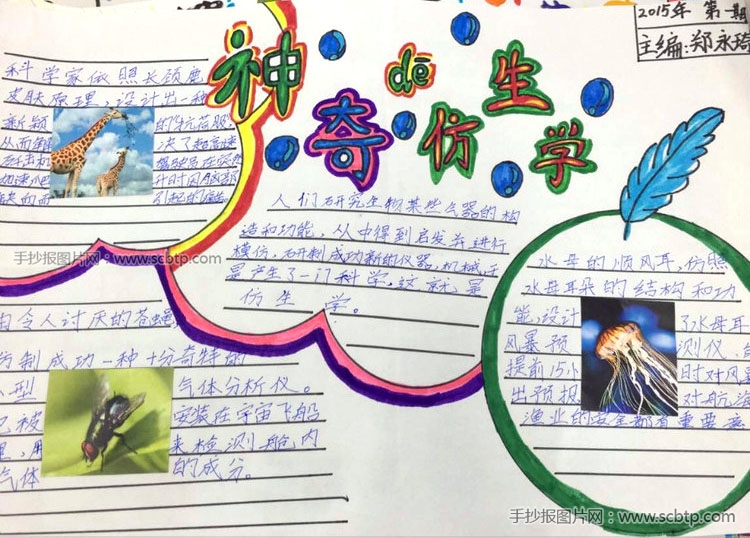 2015年 第一期
主编:郑永琦
神奇dē仿生学
科学家依照长颈鹿
皮肤原理,设计出一种
新颖的"抗荷服",
从而解决了超高速
歼击机驾驶员在突然
加速爬升时因脑部
缺血而引起的痛。
人们研究生物某些器的构
造和功能,从中得到启发并进行
模仿,研制成功新的仪器,机械,于
是产生了一门科学,这就是
仿生学。
令人讨厌的苍蝇,
仿制成功一种十分奇特的
小型气体分析仪。
已被安装在宇宙飞船
里,用来检测船内
气体的成分。
水母的顺风耳,仿照
水母耳朵的结构和功
能,设计了水母耳
风暴预测仪,
提前15小时对风暴
出预报,对航海
渔业的安全都有重要意
手抄报图片网:www.scbtp.com
手抄报图片网:www.scbtp.com
手抄报图片网:www.scbtp.com